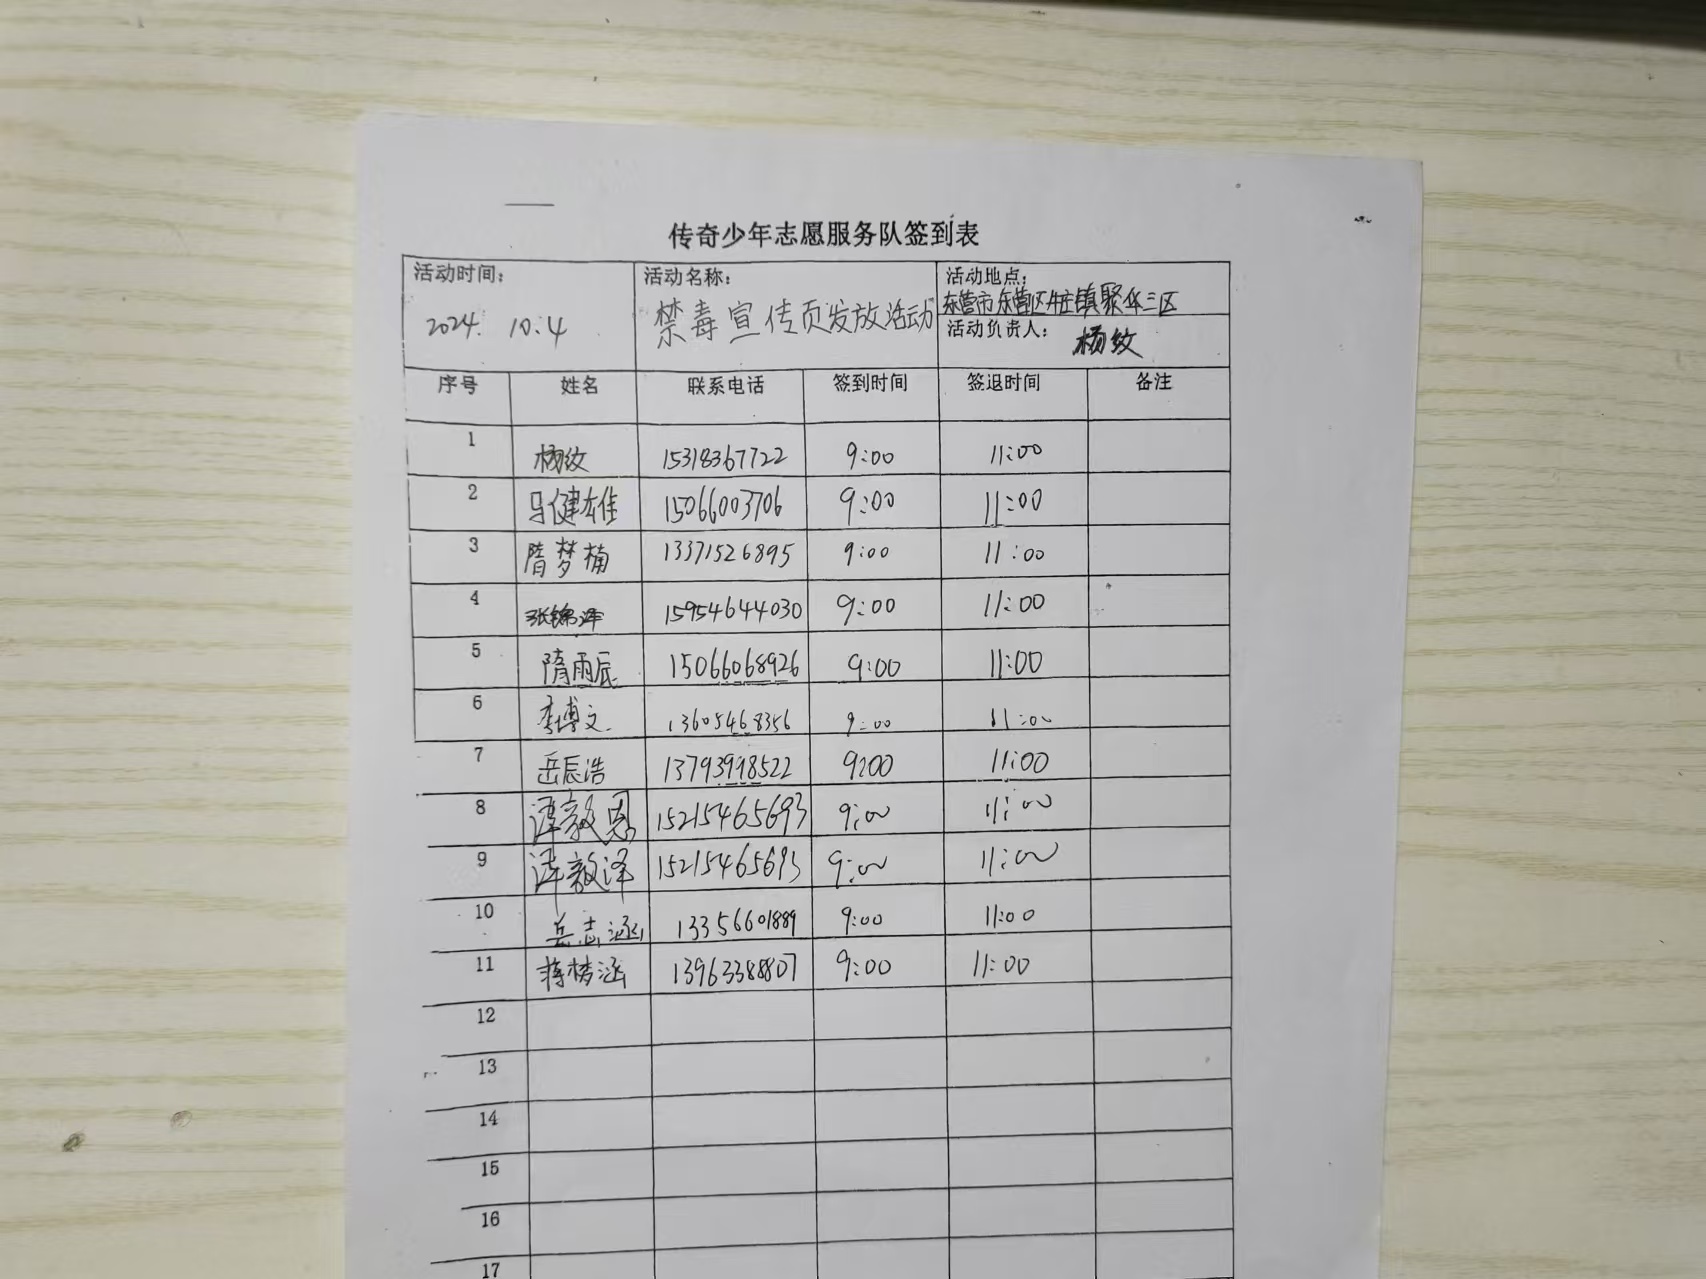 传奇少年志愿服务队签到表
活动时间: 2024. 10.4
活动名称: 禁毒宣传页发放活动
活动地点: 东营市东营区牛庄镇聚华三区
活动负责人: 杨纹
序号 姓名 联系电话 签到时间 签退时间 备注
1 杨纹 15318367722 9:00 11:00
2 马健雄 15066003706 9:00 11:00
3 隋梦楠 13371526895 9:00 11:00
4 张锦泽 15954644030 9:00 11:00
5 隋雨辰 15066068926 9:00 11:00
6 李博文 13605468356 9:00 11:00
7 岳辰浩 13793998522 9:00 11:00
8 谭毅恩 15215465693 9:00 11:00
9 谭毅泽 15215465693 9:00 11:00
10 岳志涵 13356601889 9:00 11:00
11 蒋梦涵 13963388807 9:00 11:00
12
13
14
15
16
17